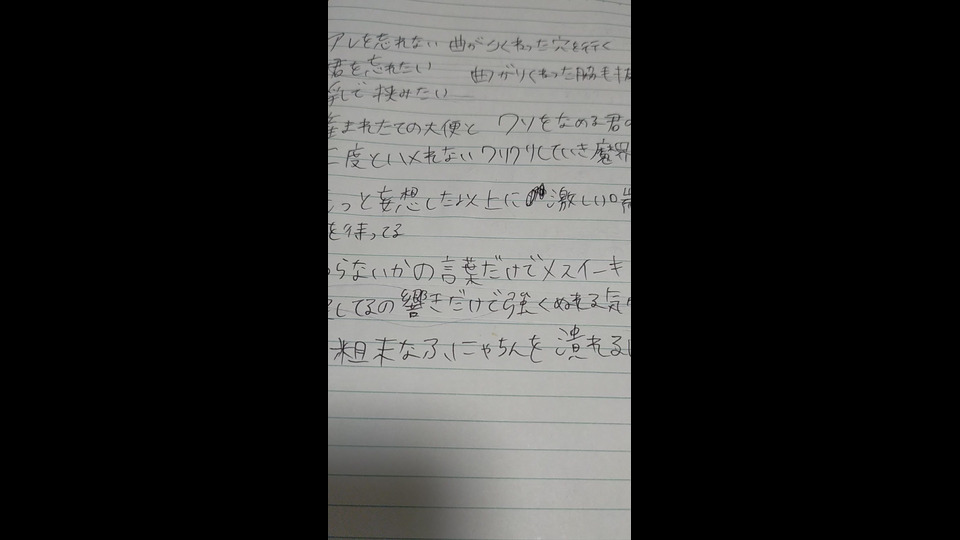 アレを忘れない 曲がりくねった穴を行く
君を忘れたい 曲がりくねった脇毛
乳で挟みたい
まれたての大便と クソをなめる君の
二度とハメれない クリクリしていき魔界
っと妄想した以上に 激しい
を待ってる
らないかの言葉だけでメスイーキ
してるの響きだけで強くぬれる気
粗末なふにゃちんを 潰れる